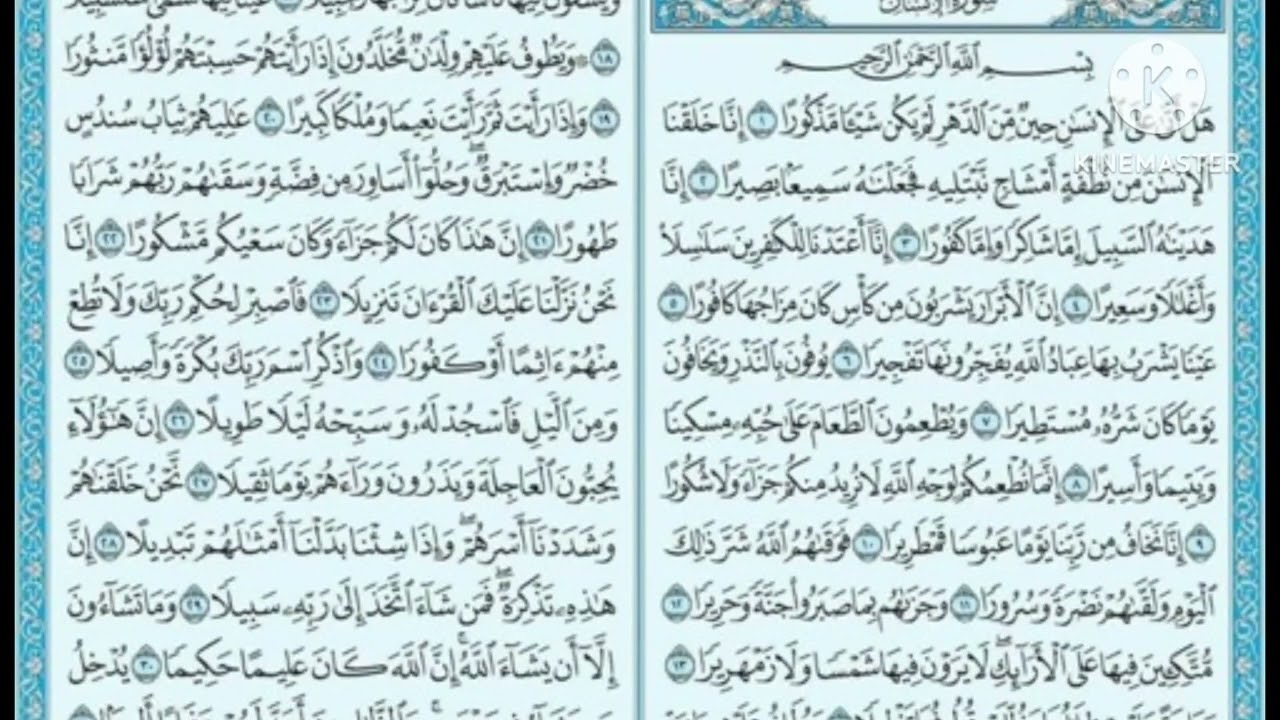 سورة الإنسان
بِسْمِ اللَّهِ الرَّحْمَٰنِ الرَّحِيمِ
هَلْ أَتَىٰ عَلَى الْإِنسَانِ حِينٌ مِّنَ الدَّهْرِ لَمْ يَكُن شَيْئًا مَّذْكُورًا ١ إِنَّا خَلَقْنَا
الْإِنسَانَ مِن نُّطْفَةٍ أَمْشَاجٍ نَّبْتَلِيهِ فَجَعَلْنَاهُ سَمِيعًا بَصِيرًا ٢ إِنَّا
هَدَيْنَاهُ السَّبِيلَ إِمَّا شَاكِرًا وَإِمَّا كَفُورًا ٣ إِنَّا أَعْتَدْنَا لِلْكَافِرِينَ سَلَاسِلَا
وَأَغْلَالًا وَسَعِيرًا ٤ إِنَّ الْأَبْرَارَ يَشْرَبُونَ مِن كَأْسٍ كَانَ مِزَاجُهَا كَافُورًا ٥
عَيْنًا يَشْرَبُ بِهَا عِبَادُ اللَّهِ يُفَجِّرُونَهَا تَفْجِيرًا ٦ يُوفُونَ بِالنَّذْرِ وَيَخَافُونَ
يَوْمًا كَانَ شَرُّهُ مُسْتَطِيرًا ٧ وَيُطْعِمُونَ الطَّعَامَ عَلَىٰ حُبِّهِ مِسْكِينًا
وَيَتِيمًا وَأَسِيرًا ٨ إِنَّمَا نُطْعِمُكُمْ لِوَجْهِ اللَّهِ لَا نُرِيدُ مِنكُمْ جَزَاءً وَلَا شُكُورًا
٩ إِنَّا نَخَافُ مِن رَّبِّنَا يَوْمًا عَبُوسًا قَمْطَرِيرًا ١٠ فَوَقَاهُمُ اللَّهُ شَرَّ ذَٰلِكَ
الْيَوْمِ وَلَقَّاهُمْ نَضْرَةً وَسُرُورًا ١١ وَجَزَاهُم بِمَا صَبَرُوا جَنَّةً وَحَرِيرًا ١٢
مُّتَّكِئِينَ فِيهَا عَلَى الْأَرَائِكِ لَا يَرَوْنَ فِيهَا شَمْسًا وَلَا زَمْهَرِيرًا ١٣
١٨ ۞ وَيَطُوفُ عَلَيْهِمْ وِلْدَانٌ مُّخَلَّدُونَ إِذَا رَأَيْتَهُمْ حَسِبْتَهُمْ لُؤْلُؤًا مَّنثُورًا
١٩ وَإِذَا رَأَيْتَ ثَمَّ رَأَيْتَ نَعِيمًا وَمُلْكًا كَبِيرًا ٢٠ عَالِيَهُمْ ثِيَابُ سُندُسٍ
خُضْرٌ وَإِسْتَبْرَقٌ ۖ وَحُلُّوا أَسَاوِرَ مِن فِضَّةٍ وَسَقَاهُمْ رَبُّهُمْ شَرَابًا
طَهُورًا ٢١ إِنَّ هَٰذَا كَانَ لَكُمْ جَزَاءً وَكَانَ سَعْيُكُم مَّشْكُورًا ٢٢ إِنَّا
نَحْنُ نَزَّلْنَا عَلَيْكَ الْقُرْآنَ تَنزِيلًا ٢٣ فَاصْبِرْ لِحُكْمِ رَبِّكَ وَلَا تُطِعْ
مِنْهُمْ آثِمًا أَوْ كَفُورًا ٢٤ وَاذْكُرِ اسْمَ رَبِّكَ بُكْرَةً وَأَصِيلًا ٢٥
وَمِنَ اللَّيْلِ فَاسْجُدْ لَهُ وَسَبِّحْهُ لَيْلًا طَوِيلًا ٢٦ إِنَّ هَٰؤُلَاءِ
يُحِبُّونَ الْعَاجِلَةَ وَيَذَرُونَ وَرَاءَهُمْ يَوْمًا ثَقِيلًا ٢٧ نَّحْنُ خَلَقْنَاهُمْ
وَشَدَدْنَا أَسْرَهُمْ ۖ وَإِذَا شِئْنَا بَدَّلْنَا أَمْثَالَهُمْ تَبْدِيلًا ٢٨ إِنَّ
هَٰذِهِ تَذْكِرَةٌ ۖ فَمَن شَاءَ اتَّخَذَ إِلَىٰ رَبِّهِ سَبِيلًا ٢٩ وَمَا تَشَاءُونَ
إِلَّا أَن يَشَاءَ اللَّهُ ۚ إِنَّ اللَّهَ كَانَ عَلِيمًا حَكِيمًا ٣٠ يُدْخِلُ
KINEMASTER